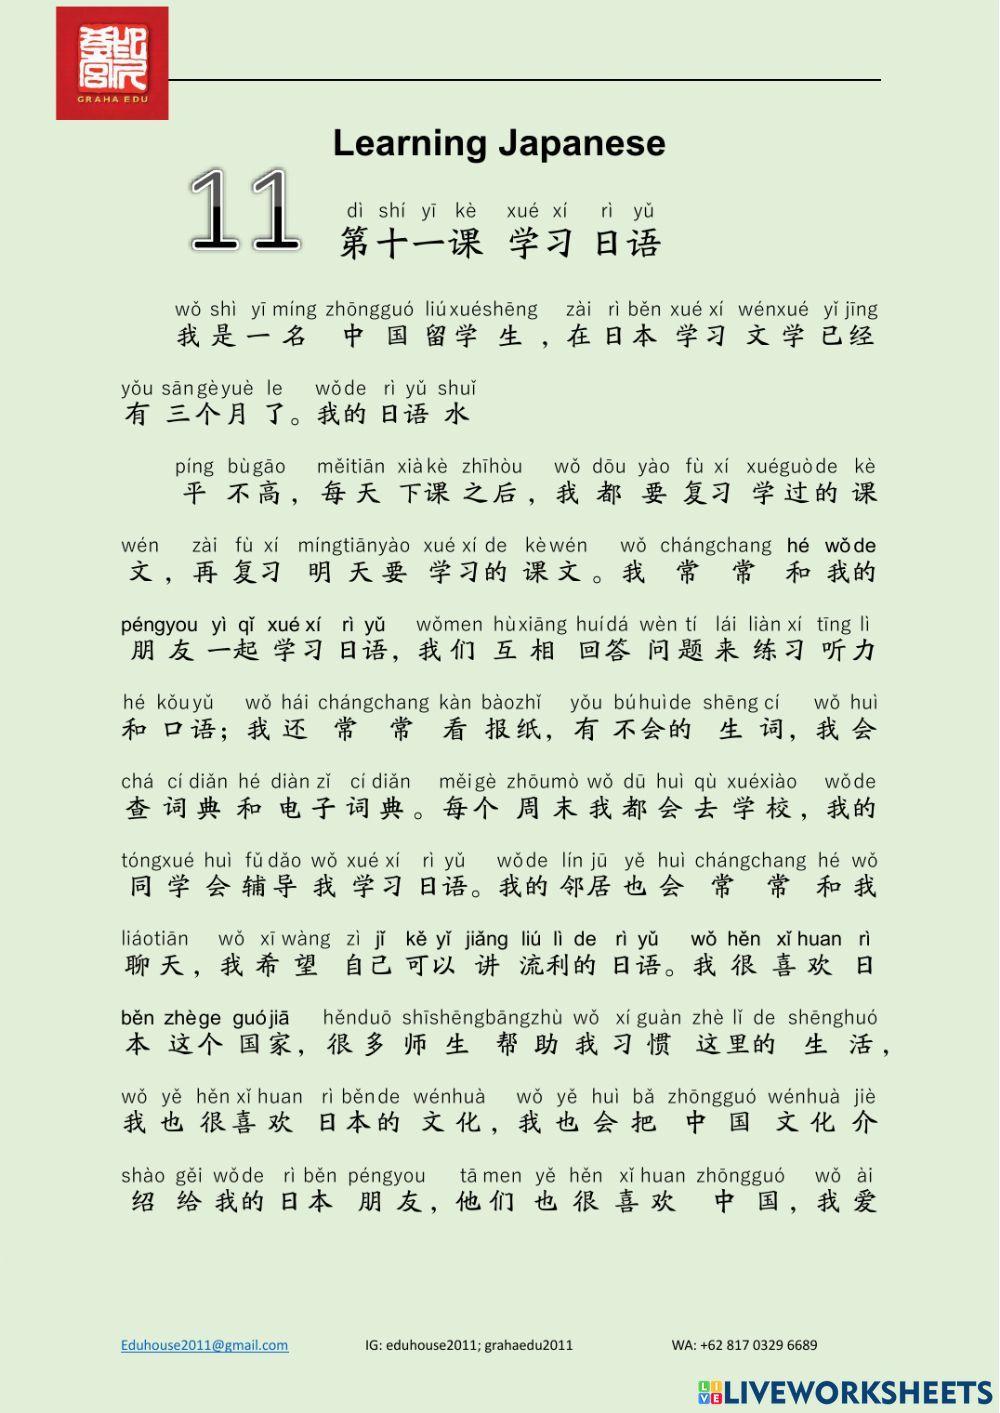 登邸
宫元
GRAHA EDU
Learning Japanese
11
dì shí yī kè xué xí rì yǔ
第十一课 学习 日语
wǒ shì yī míng zhōngguó liúxuéshēng zài rì běn xué xí wénxué yǐ jīng
我是一名 中国留学生,在日本学习文学已经
yǒu sān gèyuè le wǒde rì yǔ shuǐ
有三个月了。我的日语水
píng bùgāo měitiān xià kè zhīhòu wǒ dōu yào fù xí xuéguòde kè
平不高,每天下课之后,我都要复习学过的课
wén zài fù xí míngtiānyào xué xí de kèwén wǒ chángchang hé wǒde
文,再复习明天要学习的课文。我常常和我的
péngyou yì qǐ xué xí rì yǔ wǒmen hùxiāng huídá wèn tí lái liàn xí tīng lì
朋友一起学习日语,我们互相回答问题来练习听力
hé kǒuyǔ wǒ hái chángchang kàn bàozhǐ yǒu búhuìde shēng cí wǒ huì
和口语;我还常常看报纸,有不会的生词,我会
chá cí diǎn hé diàn zǐ cí diǎn měigè zhōumò wǒ dū huì qù xuéxiào wǒde
查词典和电子词典。每个周末我都会去学校,我的
tóngxué huì fǔ dǎo wǒ xué xí rì yǔ wǒde lín jū yě huì chángchang hé wǒ
同学会辅导我学习日语。我的邻居也会常常和我
liáotiān wǒ xī wàng zì jǐ kě yǐ jiǎng liú lì de rì yǔ wǒ hěn xǐ huan rì
聊天,我希望自己可以讲流利的日语。我很喜欢日
běn zhège guójiā hěnduō shīshēngbāngzhù wǒ xí guàn zhè lǐ de shēnghuó
本这个国家,很多师生帮助我习惯这里的生活,
wǒ yě hěn xǐ huan rì běnde wénhuà wǒ yě huì bǎ zhōngguó wénhuà jiè
我也很喜欢日本的文化,我也会把中国文化介
shào gěi wǒde rì běn péngyou tā men yě hěn xǐ huan zhōngguó wǒ ài
绍给我的日本朋友,他们也很喜欢 中国,我爱
Eduhouse2011@gmail.com IG: eduhouse2011; grahaedu2011 WA: +62 817 0329 6689
LIVE LIVEWORKSHEETS